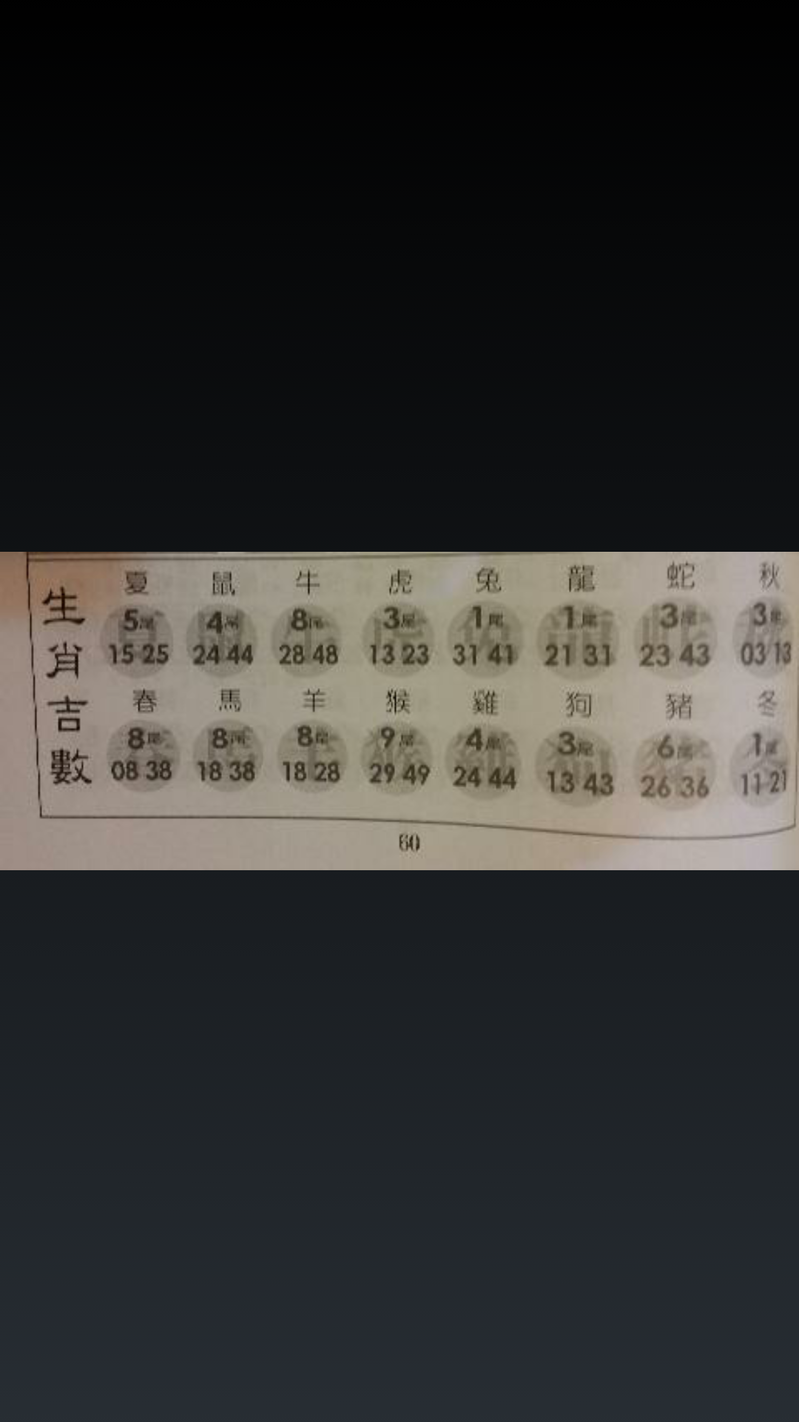 生肖吉數
夏 鼠 牛 虎 兔 龍 蛇 秋
5尾 4尾 8尾 3尾 1尾 1尾 3尾 3尾
15 25 24 44 28 48 13 23 31 41 21 31 23 43 03 13
春 馬 羊 猴 雞 狗 豬 冬
8尾 8尾 8尾 9尾 4尾 3尾 6尾 1尾
08 38 18 38 18 28 29 49 24 44 13 43 26 36 11 21
60